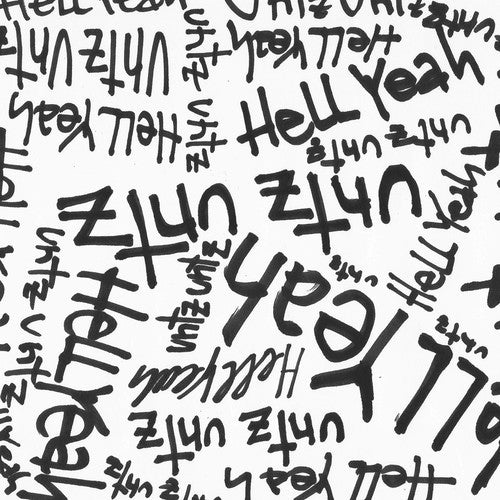 Hell Yeah
untz
untz
untz
untz
untz
untz
Hell Yeah
Hell Yeah
Hell Yeah
untz
untz
untz
untz
untz
Hell Yeah
Hell Yeah
untz
untz
untz
Yeah
untz
Hell Yeah
untz
untz
Hell Yeah
untz
untz
untz
Hell Yeah
Hell Yeah